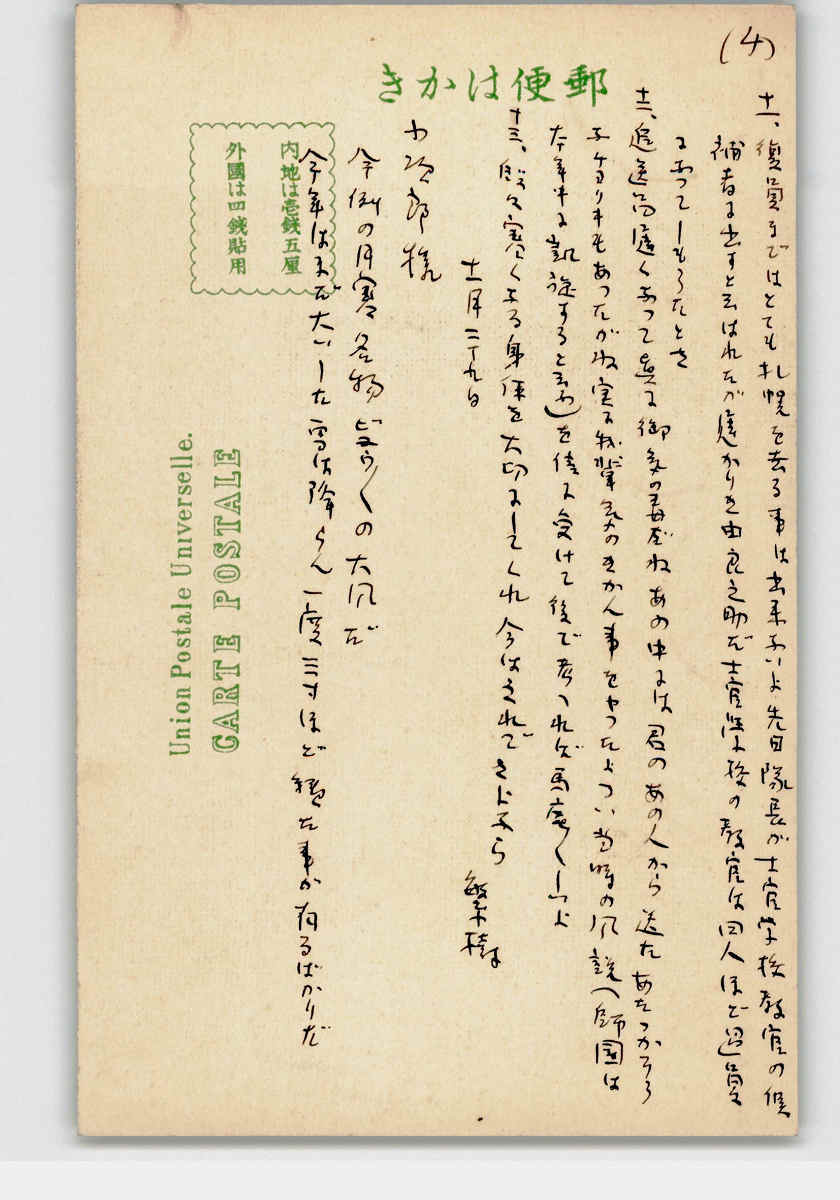 (4)
郵便はかき
十一、復員まではとても札幌を去る事は出来ないよ先日隊長が士官学校教官の候
補者に出すと云はれたが遅かりき由良之助だ士官学校の教官は四人ほど過員
になつてしもうたとさ
十二、追送品遅くなつて真に御気の毒だねあの中には君のあの人から送た
もあつたがね実に我輩気のきかん事をやつたよつい当時の風説(師団は
本年中に凱旋すると云ふ)を信に受けて後で考へれば馬鹿〱しいよ
十三、段々寒くなる身体を大切にしてくれ今はこれできよなら
十一月二十九日
繁樹
小次郎様
今例の月寒名物ビユウ〱の大風だ
今年はまだ大いした雪は降らん一度三寸ほど積た事が有るばかりだ
内地は壱銭五厘
外國は四銭貼用
CARTE POSTALE
Union Postale Universelle.